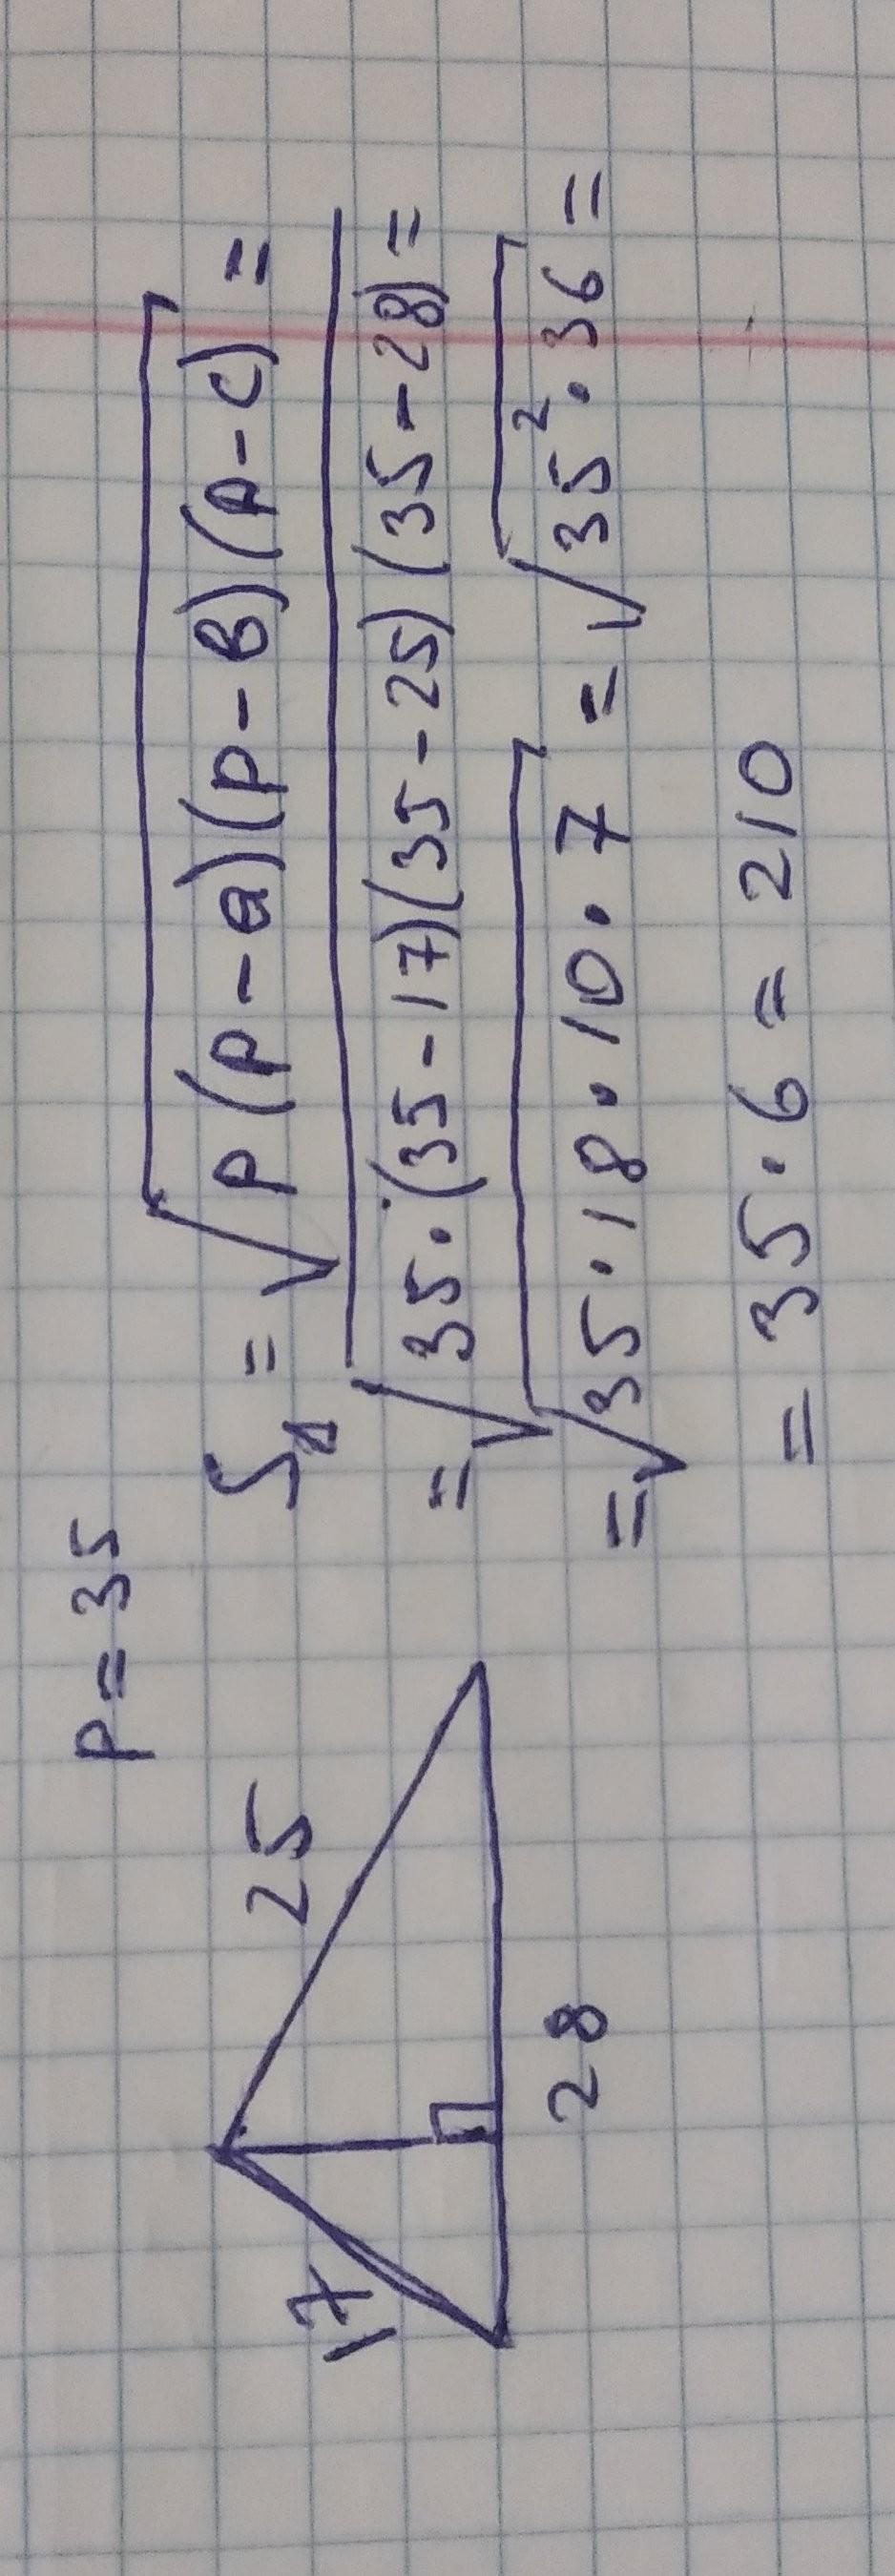 P = 35
17
25
28
S△ = √p(p-a)(p-b)(p-c) =
= √35·(35-17)(35-25)(35-28) =
= √35·18·10·7 = √35²·36 =
= 35·6 = 210